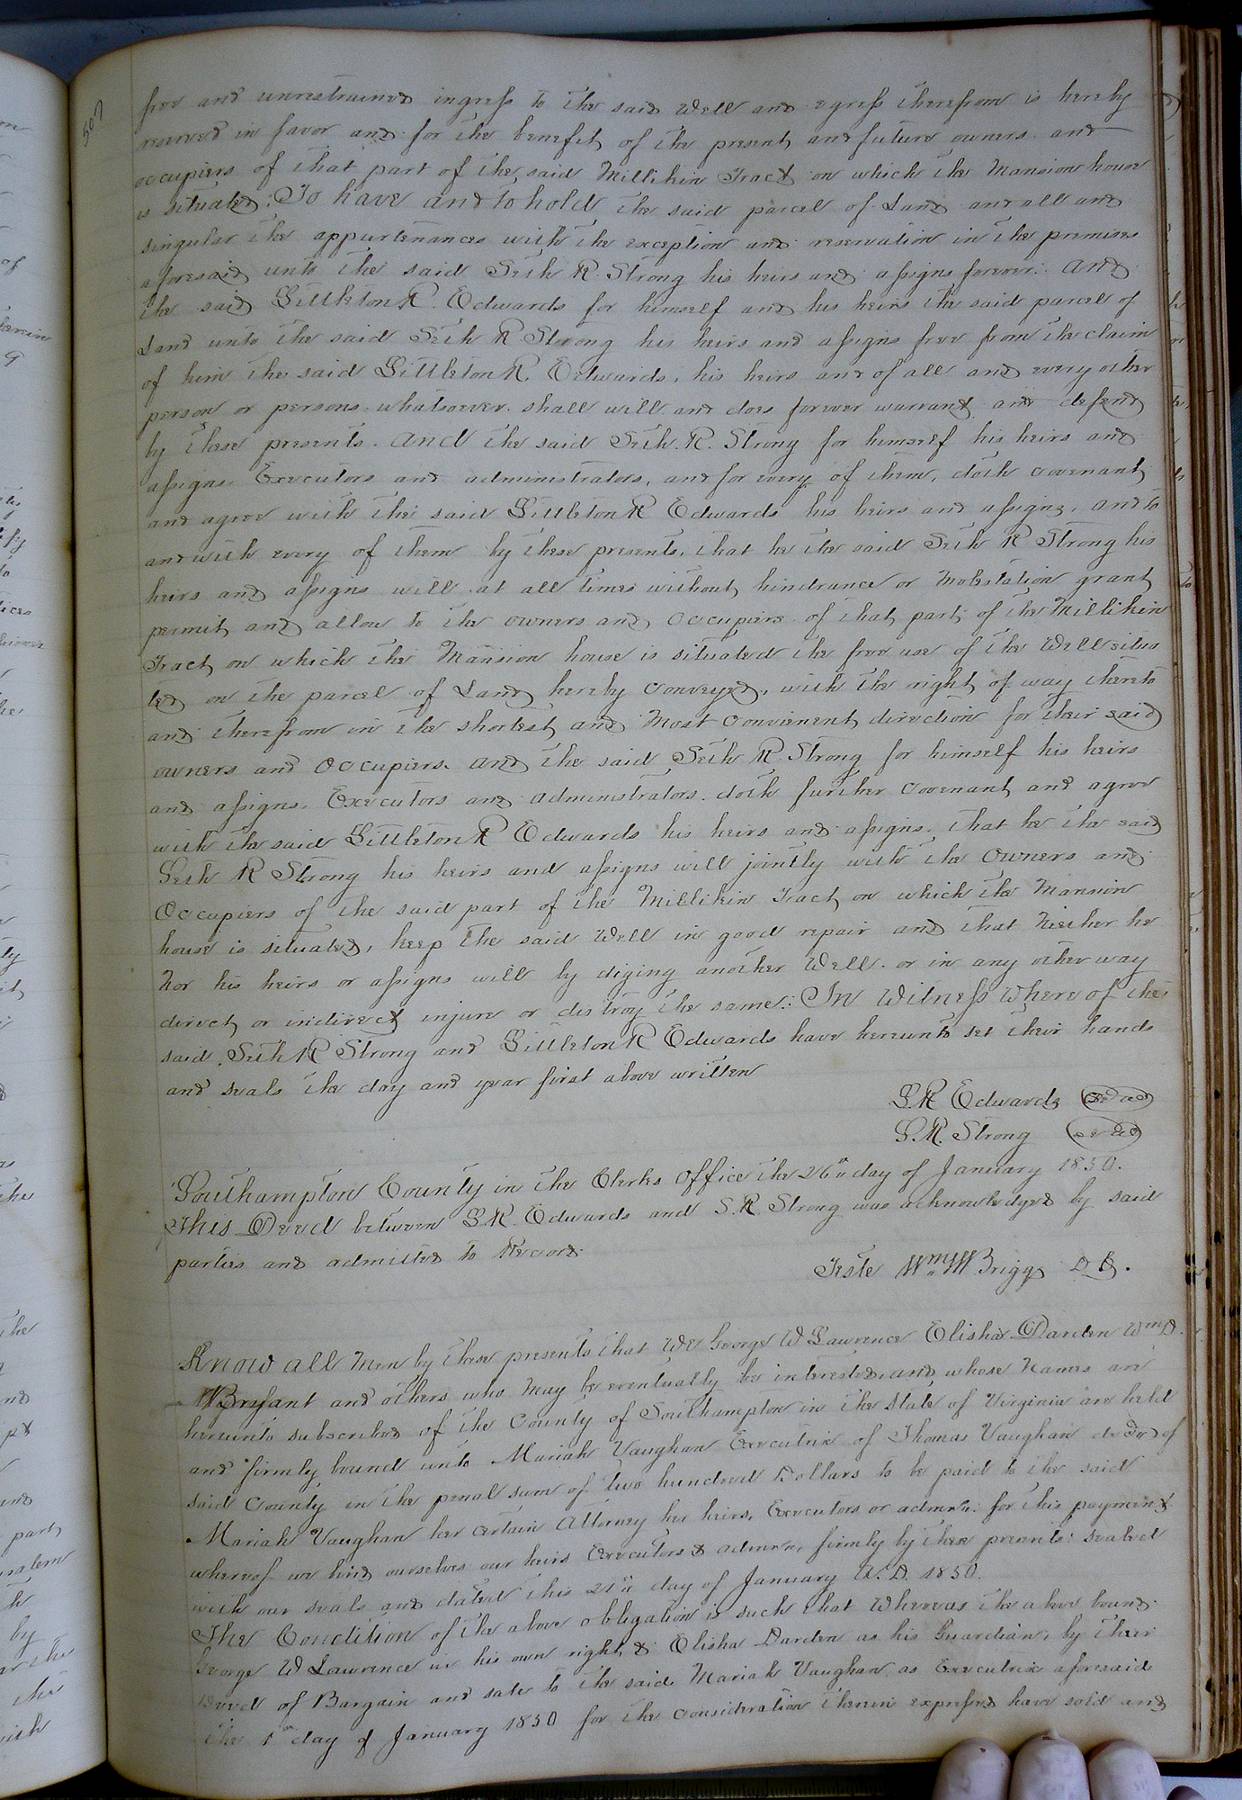 507
free and unrestrained ingress to the said Well and egress therefrom is hereby
reserved in favor and for the benefit of the present and future owners and
occupiers of that part of the said Millikin Tract on which the Mansion house
is situated. To have and to hold the said parcel of Land and all and
singular the appurtenances with the exception and reservation in the premises
aforesaid unto the said Seth R. Strong his heirs and assigns forever. And
the said Littleton R. Edwards for himself and his heirs the said parcel of
Land unto the said Seth R Strong his heirs and assigns free from the claim
of him the said Littleton R. Edwards, his heirs and of all and every other
person or persons whatsoever shall will and does forever warrant and defend
by these presents. And the said Seth. R. Strong for himself his heirs and
assigns. Executors and administrators, and for every of them, doth covenant
and agree with the said Littleton R Edwards his heirs and assigns, and to
and with every of them by these presents, that he the said Seth R Strong his
heirs and assigns will at all times without hindrance or Molestation grant
permit and allow to the owners and Occupiers of that part of the Millikin
Tract on which the Mansion house is situated the free use of the Well situa
ted on the parcel of Land hereby conveyed, with the right of way thereto
and therefrom in the shortest and Most convienent direction for their said
owners and Occupiers. And the said Seth R Strong for himself his heirs
and assigns. Executors and administrators. doth further covenant and agree
with the said Littleton R Edwards his heirs and assigns. that he the said
Seth R Strong his heirs and assigns will jointly with the Owners and
Occupiers of the said part of the Millikin Tract on which the Mansion
house is situated, keep the said Well in good repair and that Neither he
Nor his heirs or assigns will by diging another Well. or in any other way
direct or indirect injure or distroy the same. In Witness Where of the
said Seth R Strong and Littleton R Edwards have hereunto set their hands
and seals the day and year first above written
L.R Edwards seal
S.R. Strong seal
Southampton County in the Clerks Office the 26th day of January 1850.
This Deed between L.R. Edwards and S.R. Strong was acknowledged by said
parties and admitted to Record.
Teste Wm W Briggs D.C.
Know all Men by these presents that We George W Lawrence Elisha Darden Wm D.
Bryant and others who May be eventually be interested, and whose Names are
hereunto subscribed of the County of Southampton in the State of Virginia are held
and firmly bound unto Mariah Vaughan Executrix of Thomas Vaughan decd of
said County in the penal sum of two hundred Dollars to be paid to the said
Mariah Vaughan her certain Attorney her heirs, Executors or admrs. for this payment
whereof we bind ourselves our heirs Executors & admrs, firmly by these presents: sealed
with our seals and dated this 21st day of January A.D. 1850.
The Condition of the above obligation is such that Whereas the above bound
George W Lawrence in his own right, & Elisha Darden as his Guardian, by their
Deed of Bargain and sale to the said Mariah Vaughan as Executrix aforesaid
the 1st day of January 1850 for the consideration therein expressed have sold and